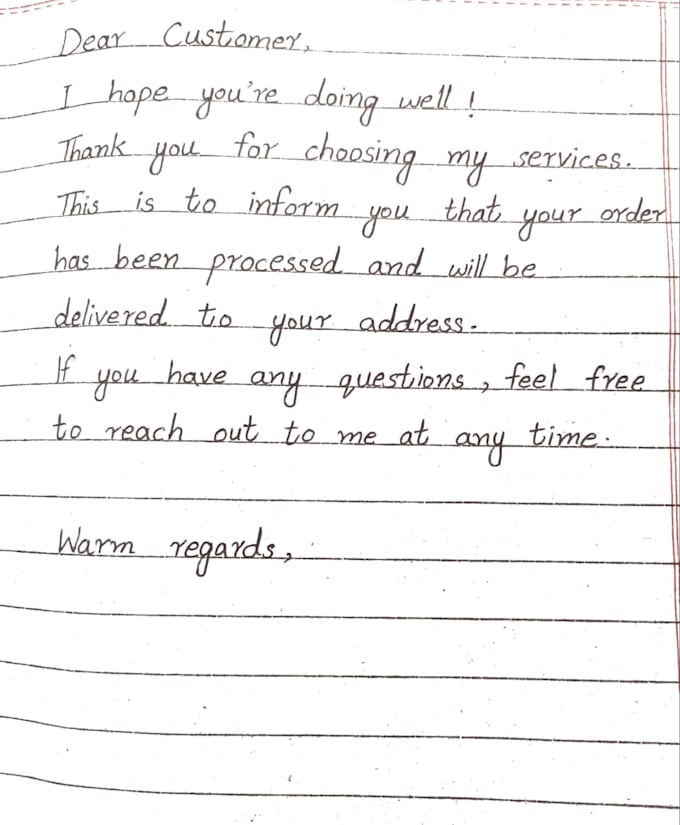 Dear Customer,
I hope you're doing well!
Thank you for choosing my services.
This is to inform you that your order
has been processed and will be
delivered to your address.
If you have any questions, feel free
to reach out to me at any time.
Warm regards,